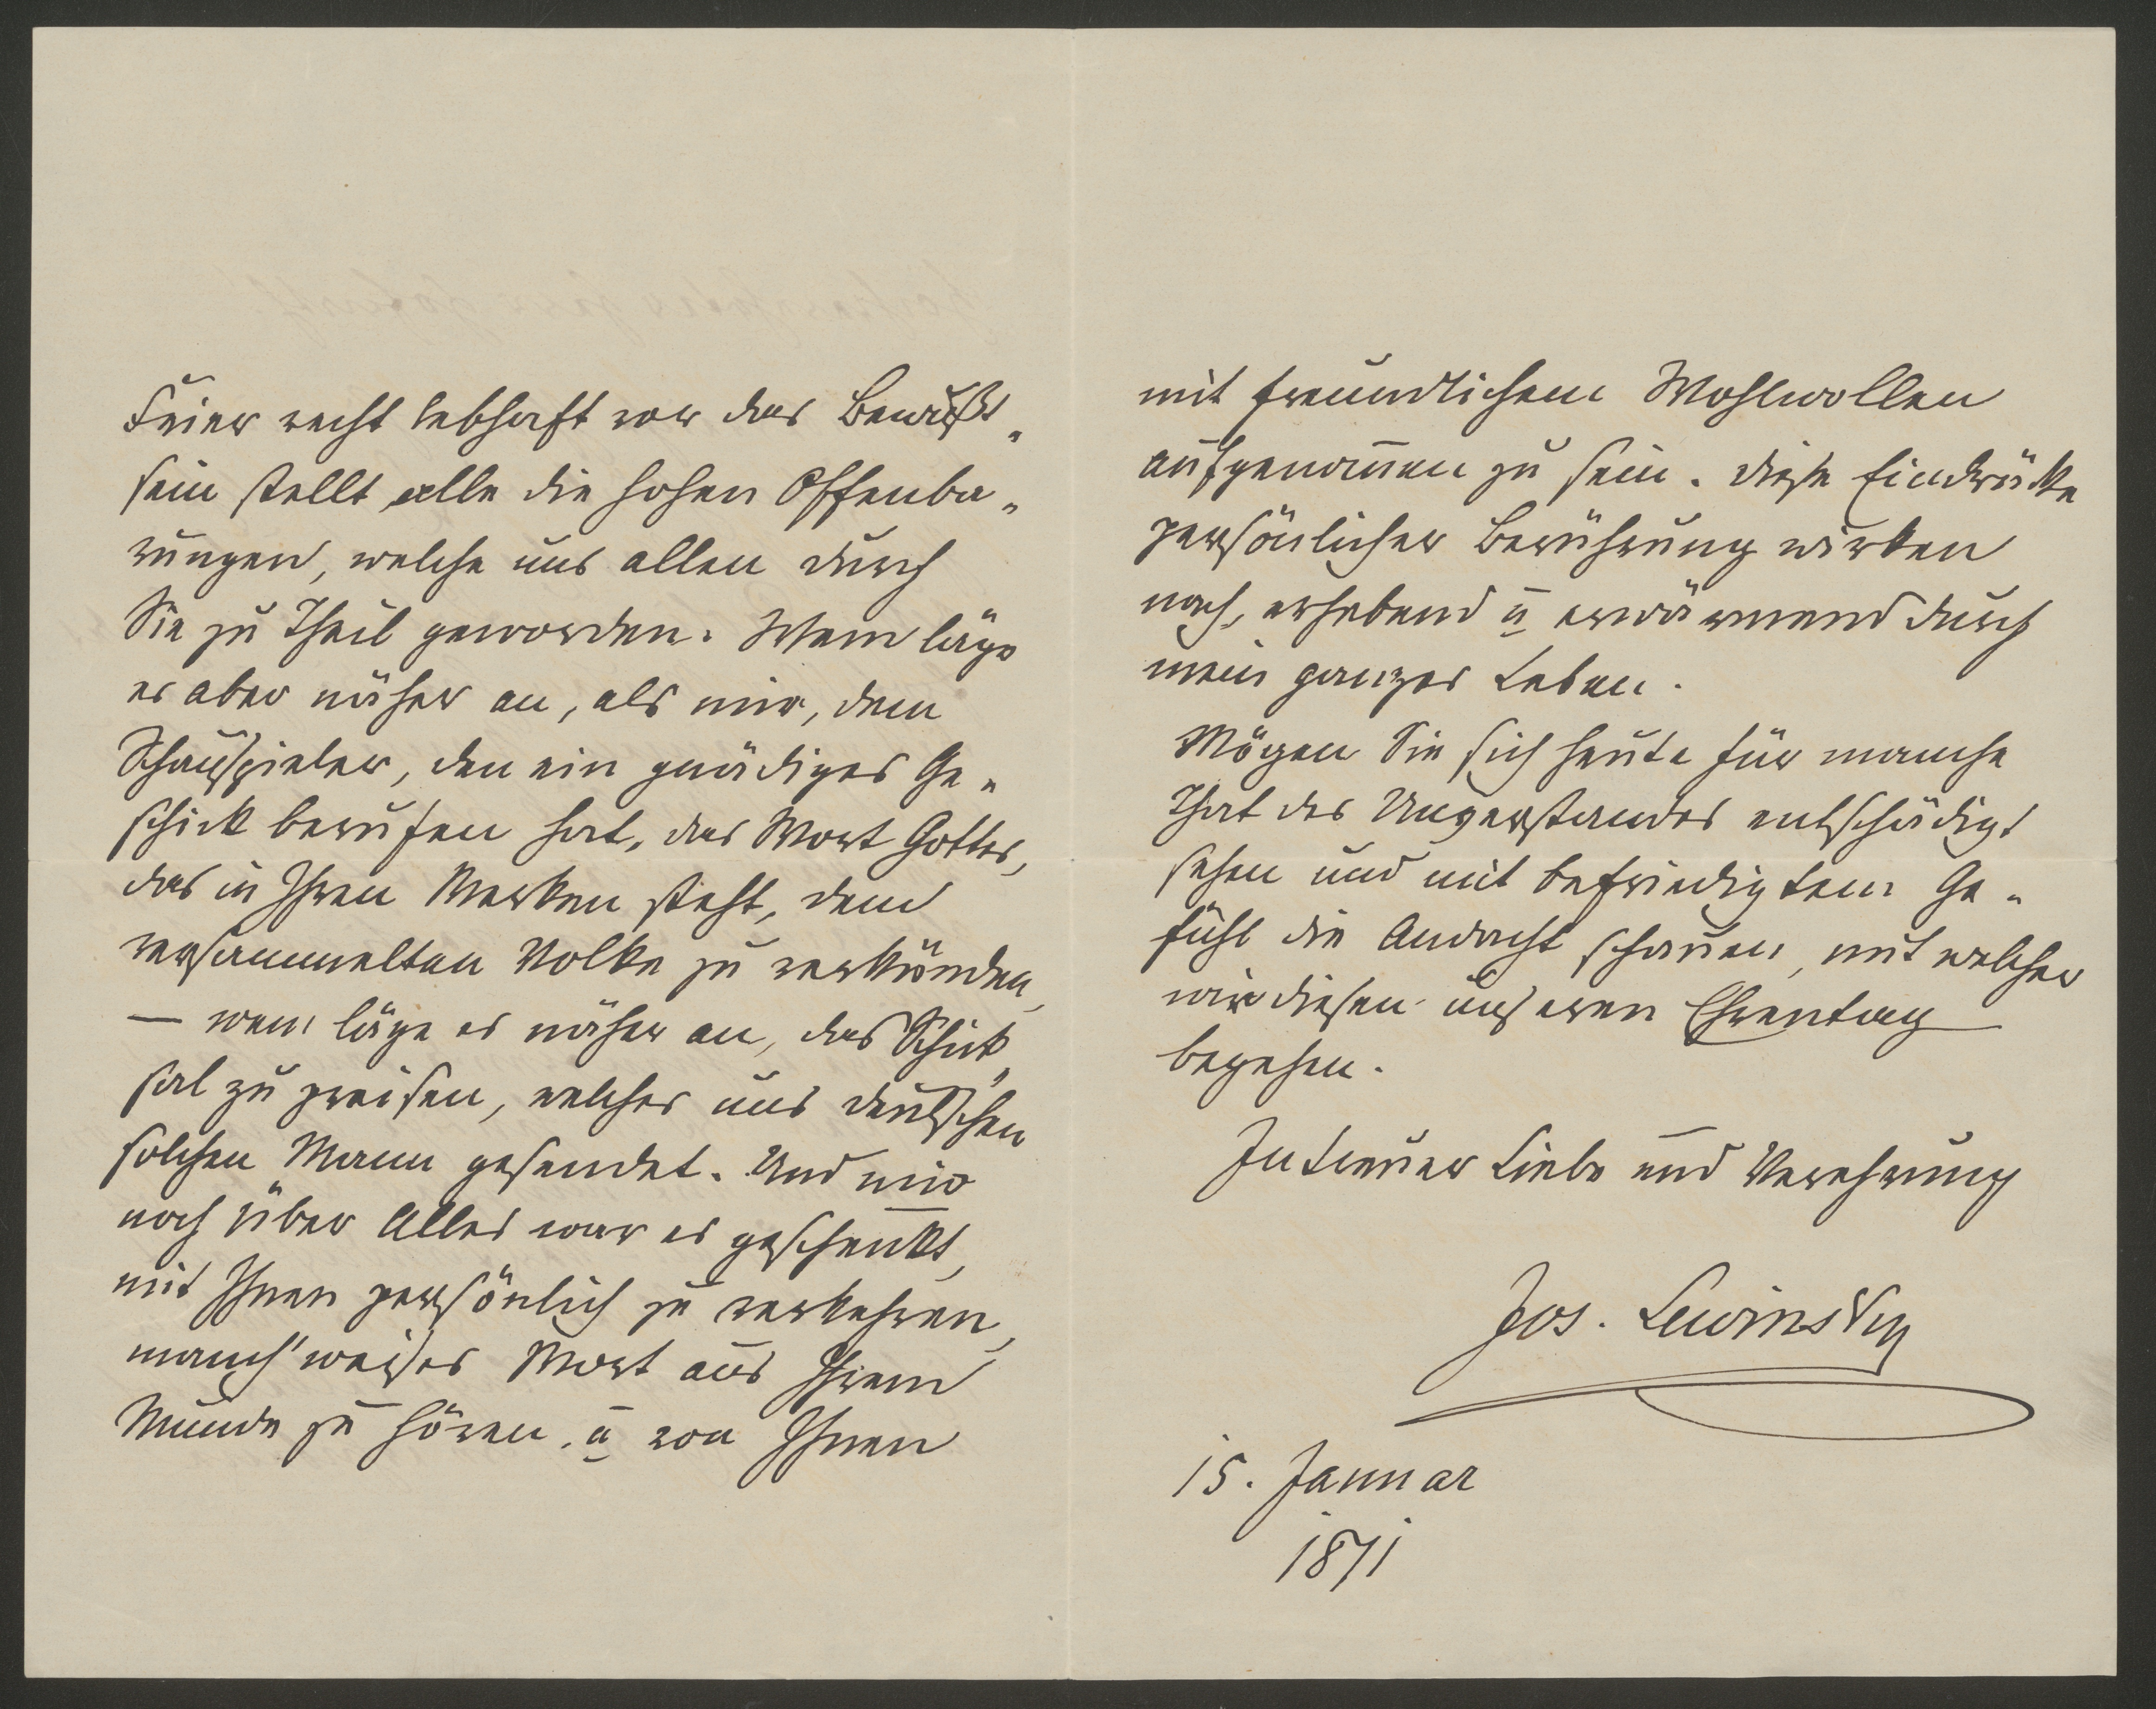 Feier recht lebhaft vor das Bewußt„
sein stellt, alle die hohen Offenba„
rungen, welche uns allen durch
Sie zu Theil geworden. Wem läge
es aber näher an, als mir, dem
Schauspieler, den ein gnädiges Ge„
schick berufen hat, das Wort Gottes,
das in Ihren Werken steht, dem
versammelten Volke zu verkünden,
— wem läge es näher an, das Schick„
sal zu preisen, welches uns deutschen
solchen Mann gesendet. Und mir
noch über Alles war es geschenkt,
mit Ihnen persönlich zu verkehren,
manch' weises Wort aus Ihrem
Munde zu hören, u von Ihnen
mit freundlichem Wohlwollen
aufgenom̅en zu sein. Diese Eindrücke
persönlicher Berührung wirken
nach, erhebend u erwärmend durch
mein ganzes Leben.
Mögen Sie sich heute für manche
That des Unverstandes entschädigt
sehen und mit befriedigtem Ge„
fühl die Andacht schauen, mit welcher
wir diesen unseren Ehrentag
begehen.
In treuer Liebe und Verehrung
Jos. Lewinsky
15. Januar
1871